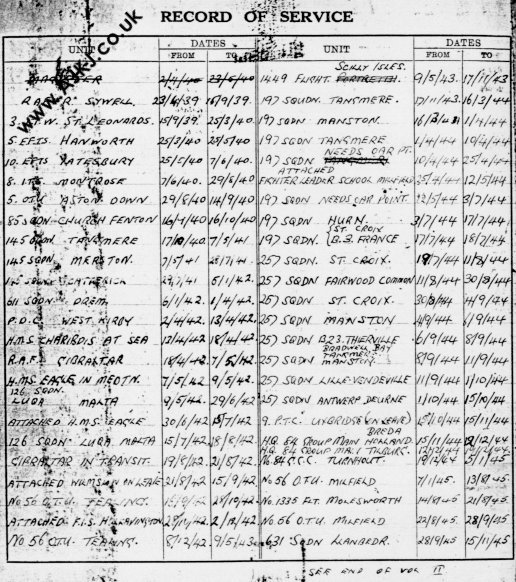 RECORD OF SERVICE
UNIT DATES FROM TO
2/4/40 23/6/40
R.A.F.V.R. SYWELL 23/6/39 15/9/39
3. I.T.W. ST. LEONARDS. 15/9/39 25/3/40
5. E.F.T.S HANWORTH 25/3/40 25/5/40
10. E.F.T.S YATESBURY 25/5/40 7/6/40.
8. MONTROSE 7/6/40. 29/8/40
5. O.T.U ASTON DOWN 29/8/40 14/9/40
85 SQDN CHURCH FENTON 16/10/40
145 SQDN. TANGMERE 17/10/40 7/5/41
145 SQDN. MERSTON. 7/5/41
145 SQDN. CATTERICK 5/1/42.
611 SQDN. DREM 6/1/42. 1/4/42
P.D.C. WEST KIRBY 2/4/42. 13/4/42.
H.M.S CHARIBDIS AT SEA 13/4/42 18/4/42
R.A.F. GIBRALTAR 18/4/42 7/5/42
H.M.S EAGLE IN MEDTN. 7/5/42 9/5/42.
126 SQDN.
LUQA MALTA 9/5/42. 29/6/42
ATTACHED H.M.S EAGLE 30/6/42 15/7/42
126 SQDN LUQA MALTA 15/7/42 18/8/42
GIBRALTAR IN TRANSIT. 19/8/42 21/8/42
ATTACHED ON LEAVE 21/8/42 15/9/42
NO 56 O.T.U. TEALING.
ATTACHED F.L.S HULLAVINGTON 2/12/42
NO 56 O.T.U. TEALING 8/12/42 9/5/43
UNIT DATES FROM TO
SCILLY ISLES.
1449 FLIGHT PORTREATH. 9/5/43. 17/11/43
197 SQUDN. TANGMERE. 17/11/43 16/3/44
197 SQDN MANSTON. 16/3/44 1/4/44
197 SQDN TANGMERE 1/4/44 10/4/44
NEEDS OAR PT.
197 SQDN 10/4/44 25/4/44
ATTACHED
FIGHTER LEADER SCHOOL MILFIELD 25/4/44 12/5/44
197 SQDN NEEDS OAR POINT. 3/7/44
197 SQDN HURN 3/7/44 17/7/44
ST. CROIX
197 SQDN. B.3. FRANCE 17/7/44 18/7/44
257 SQDN. ST CROIX. 19/7/44 11/8/44
257 SQDN FAIRWOOD COMMON 11/8/44 30/8/44
257 SQDN ST. CROIX. 30/8/44 4/9/44
257 SQDN MANSTON 4/9/44 6/9/44
257 SQDN B23. THERVILLE 6/9/44 8/9/44
BRADWELL BAY
TANGMERE
257 SQDN MANSTON 8/9/44 11/9/44
257 SQDN LILLE-VENDEVILLE 11/9/44 1/10/44
257 SQDN ANTWERP DEURNE 1/10/44 15/10/44
9. P.T.C. UXBRIDGE (ON LEAVE) 15/10/44 15/11/44
BREDA
H.Q. 84 GROUP MAIN HOLLAND. 15/11/44 12/12/44
H.Q. 84 GROUP MAIN TILBURG. 12/12/44
No 84 G.C.C. TURNHOUT 19/12/44 5/1/45
NO 56 O.T.U. MILFIELD. 7/1/45. 13/8/45
No. 1335 FLT. MOLESWORTH 14/8/45 21/8/45
NO 56 O.T.U. MILFIELD 22/8/45. 28/9/45
631 SQDN LLANBEDR. 28/9/45 15/11/45
SEE END OF VOL II